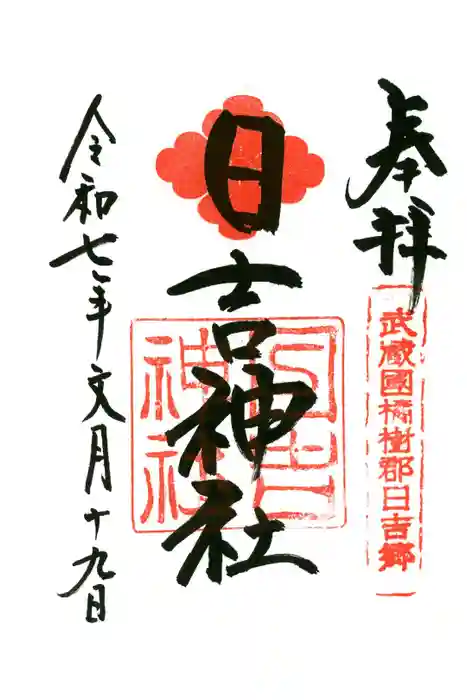 奉拝
武蔵國橘樹郡日吉郷
日吉神社
日吉
神社
令和七年文月十九日